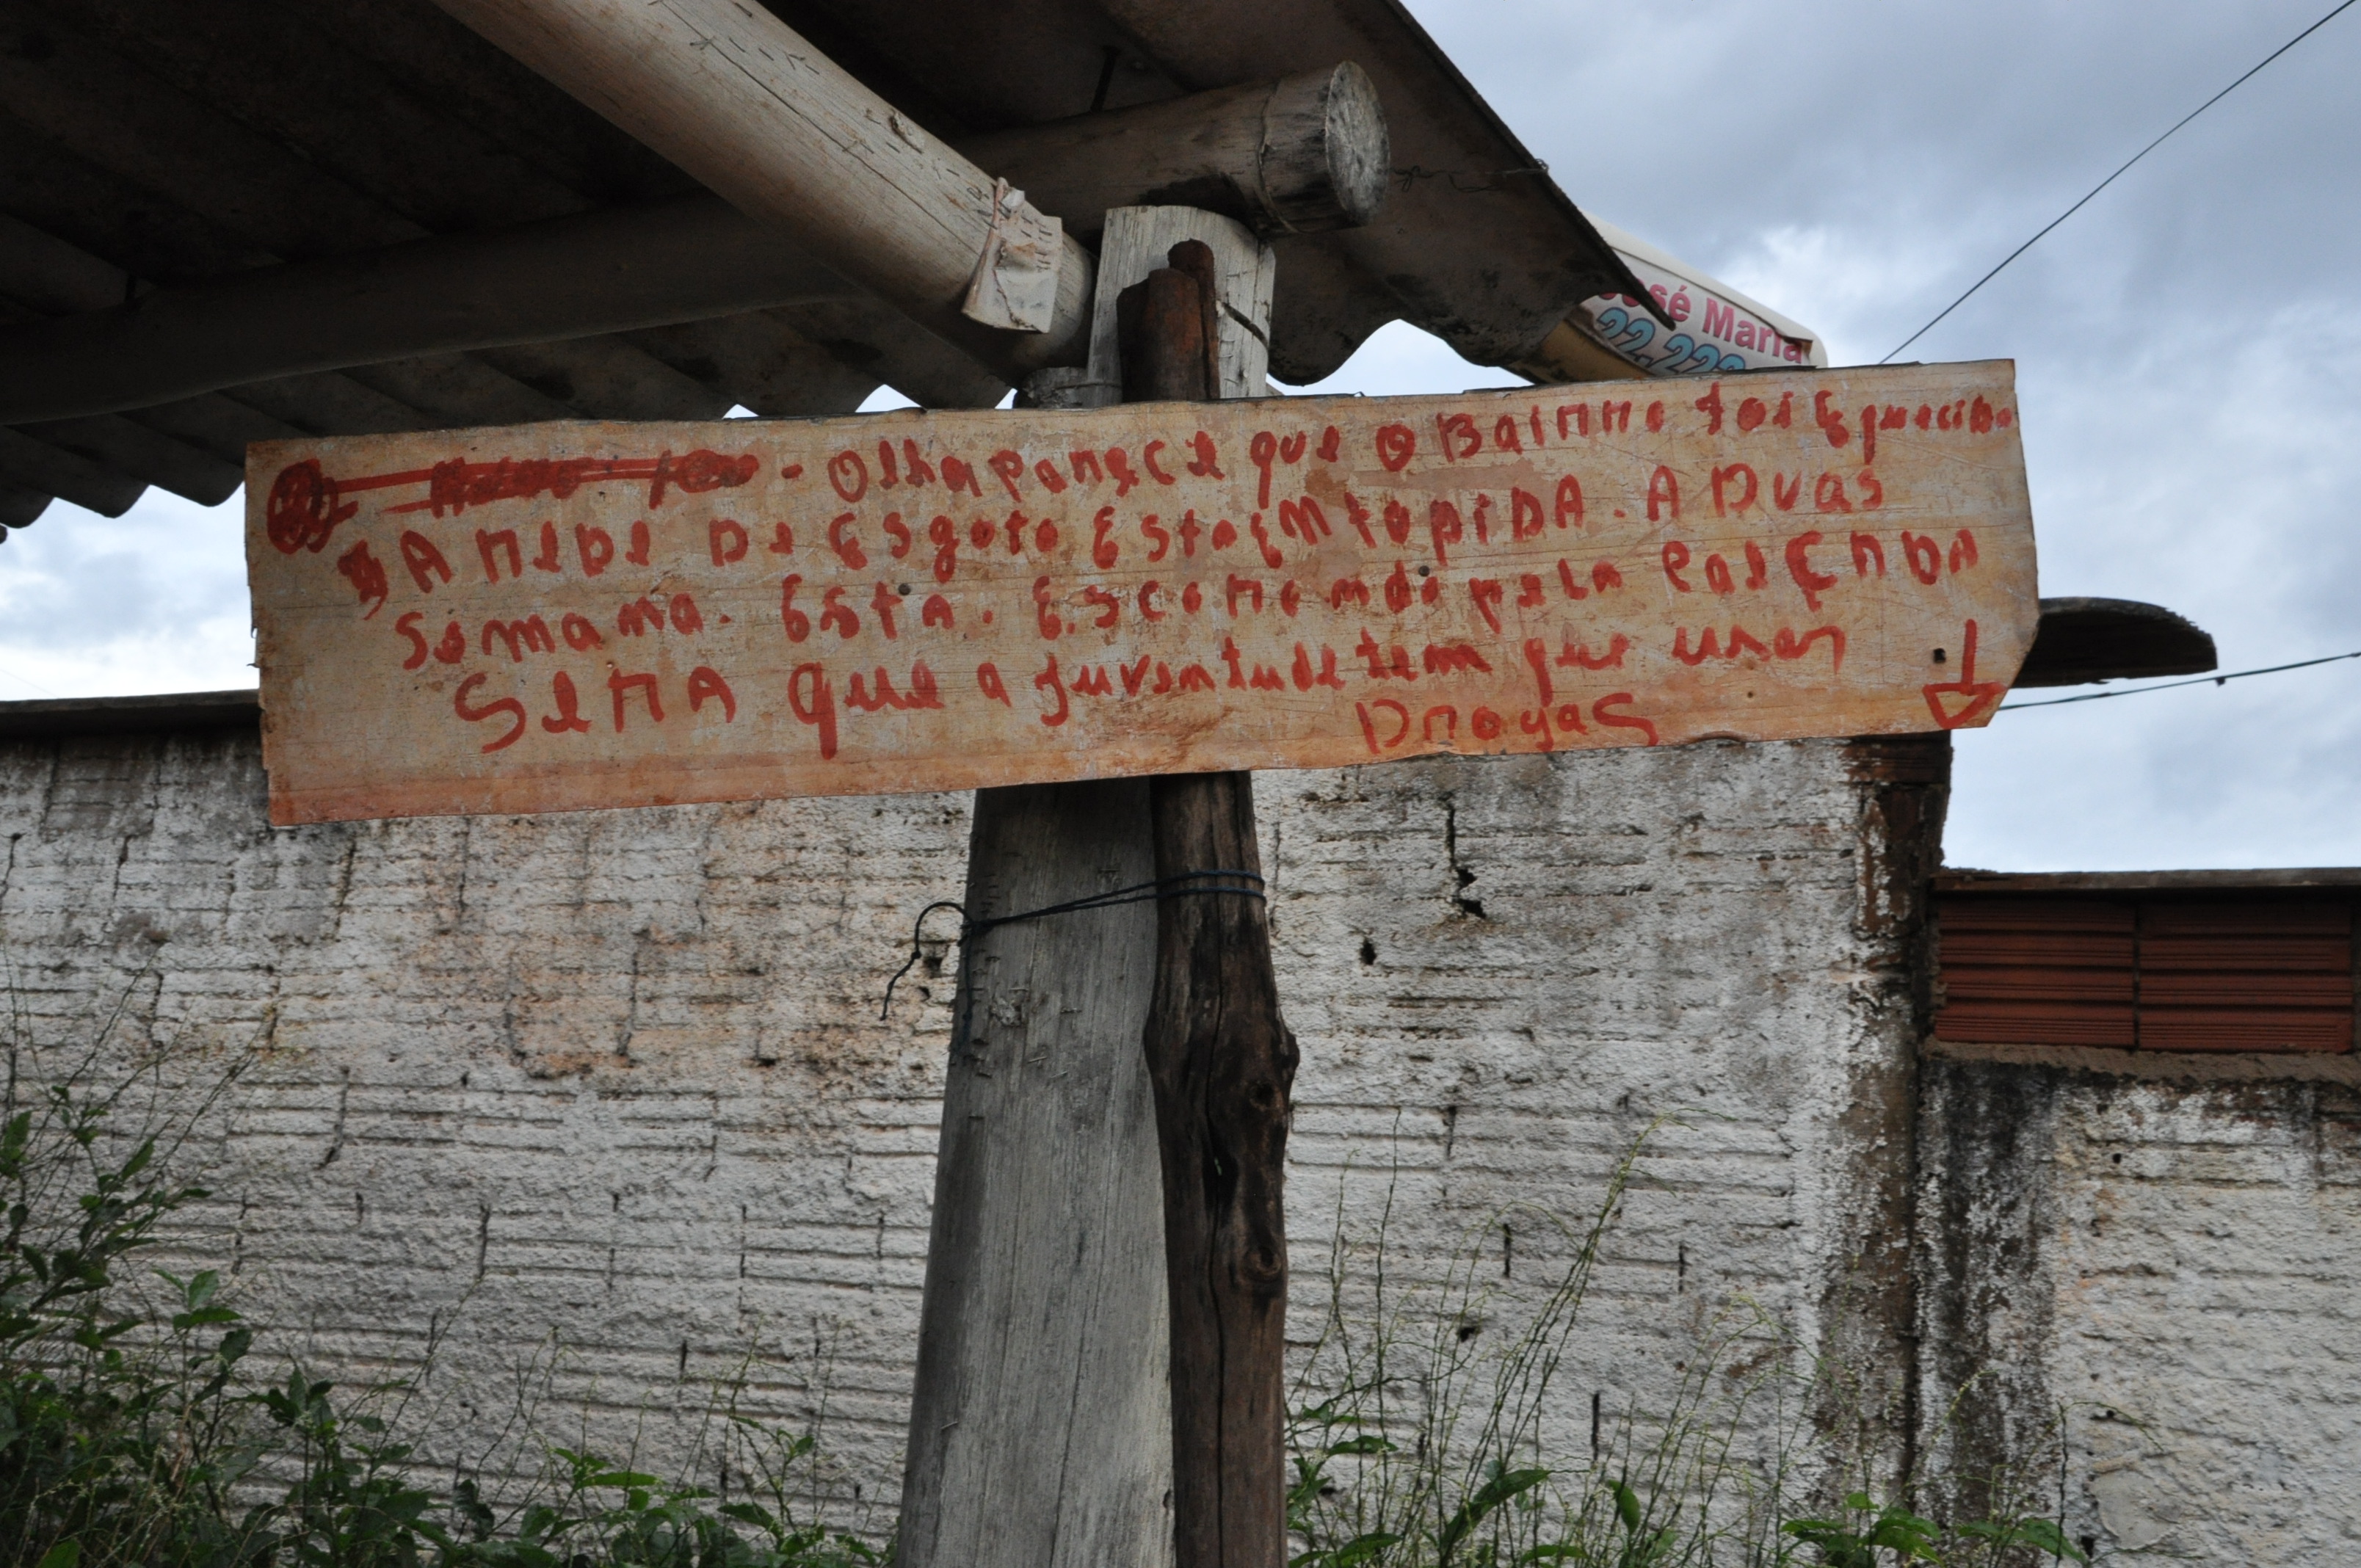 José Maria
22.222
- Olha parece que O Bairro foi Esquecido
A rede De Esgoto Esta EntopiDA. A Duas
Semana. Esta. Escorrendo pela CalçADA
SerA que a juventude tem que usar
Drogas